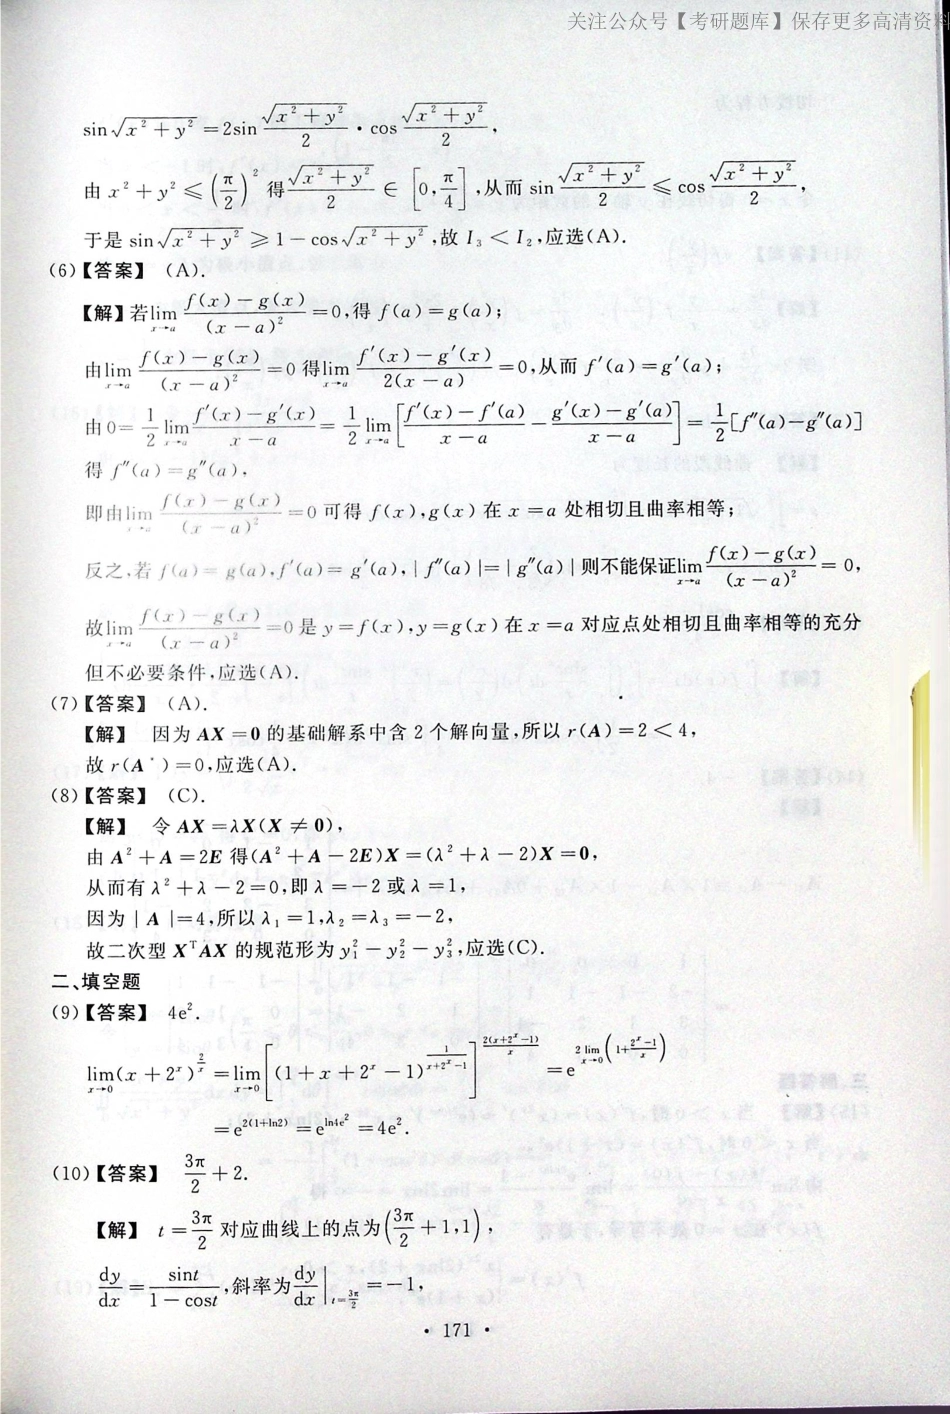 关注公众号【考研题库】保存更多高清资料
sin√(x²+y²)=2sin (√(x²+y²))/2 · cos (√(x²+y²))/2,
由 x²+y²≤(π/2)² 得 (√(x²+y²))/2 ∈ [0,π/4],从而 sin (√(x²+y²))/2 ≤ cos (√(x²+y²))/2,
于是 sin√(x²+y²) ≥ 1−cos√(x²+y²),故 I₃<I₂,应选(A).
(6)【答案】 (A).
【解】若lim_{x→a} (f(x)−g(x))/(x−a)² =0,得 f(a)=g(a);
由lim_{x→a} (f(x)−g(x))/(x−a)² =0 得lim_{x→a} (f′(x)−g′(x))/(2(x−a)) =0,从而 f′(a)=g′(a);
由 0= 1/2 lim_{x→a} (f′(x)−g′(x))/(x−a) = 1/2 lim_{x→a} [(f′(x)−f′(a))/(x−a) − (g′(x)−g′(a))/(x−a)] = 1/2 [f″(a)−g″(a)]
得 f″(a)=g″(a),
即由lim_{x→a} (f(x)−g(x))/(x−a)² =0 可得 f(x),g(x) 在 x=a 处相切且曲率相等;
反之,若 f(a)=g(a),f′(a)=g′(a),|f″(a)|=|g″(a)|则不能保证lim_{x→a} (f(x)−g(x))/(x−a)² =0,
故lim_{x→a} (f(x)−g(x))/(x−a)² =0 是 y=f(x),y=g(x) 在 x=a 对应点处相切且曲率相等的充分
但不必要条件,应选(A).
(7)【答案】 (A).
【解】 因为 AX=0 的基础解系中含 2 个解向量,所以 r(A)=2<4,
故 r(A*)=0,应选(A).
(8)【答案】 (C).
【解】 令 AX=λX(X≠0),
由 A²+A=2E 得(A²+A−2E)X=(λ²+λ−2)X=0,
从而有 λ²+λ−2=0,即 λ=−2 或 λ=1,
因为|A|=4,所以 λ₁=1,λ₂=λ₃=−2,
故二次型 XᵀAX 的规范形为 y₁²−y₂²−y₃²,应选(C).
二、填空题
(9)【答案】 4e².
lim_{x→0}(x+2ˣ)^{2/x} = lim_{x→0}[(1+x+2ˣ−1)^{1/(x+2ˣ−1)}]^{2(x+2ˣ−1)/x} = e^{2lim_{x→0}(1+(2ˣ−1)/x)}
=e^{2(1+ln2)}=e^{ln4e²}=4e².
(10)【答案】 3π/2+2.
【解】 t=3π/2 对应曲线上的点为(3π/2+1,1),
dy/dx = sint/(1−cost),斜率为 dy/dx|_{t=3π/2} =−1,
· 171 ·